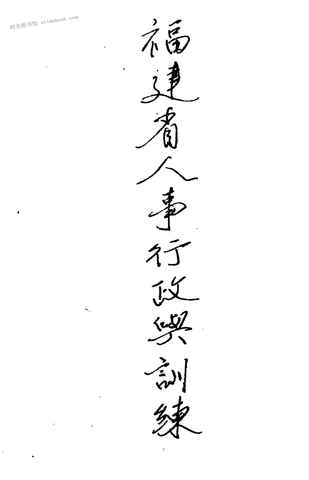 福建省人事行政與訓練